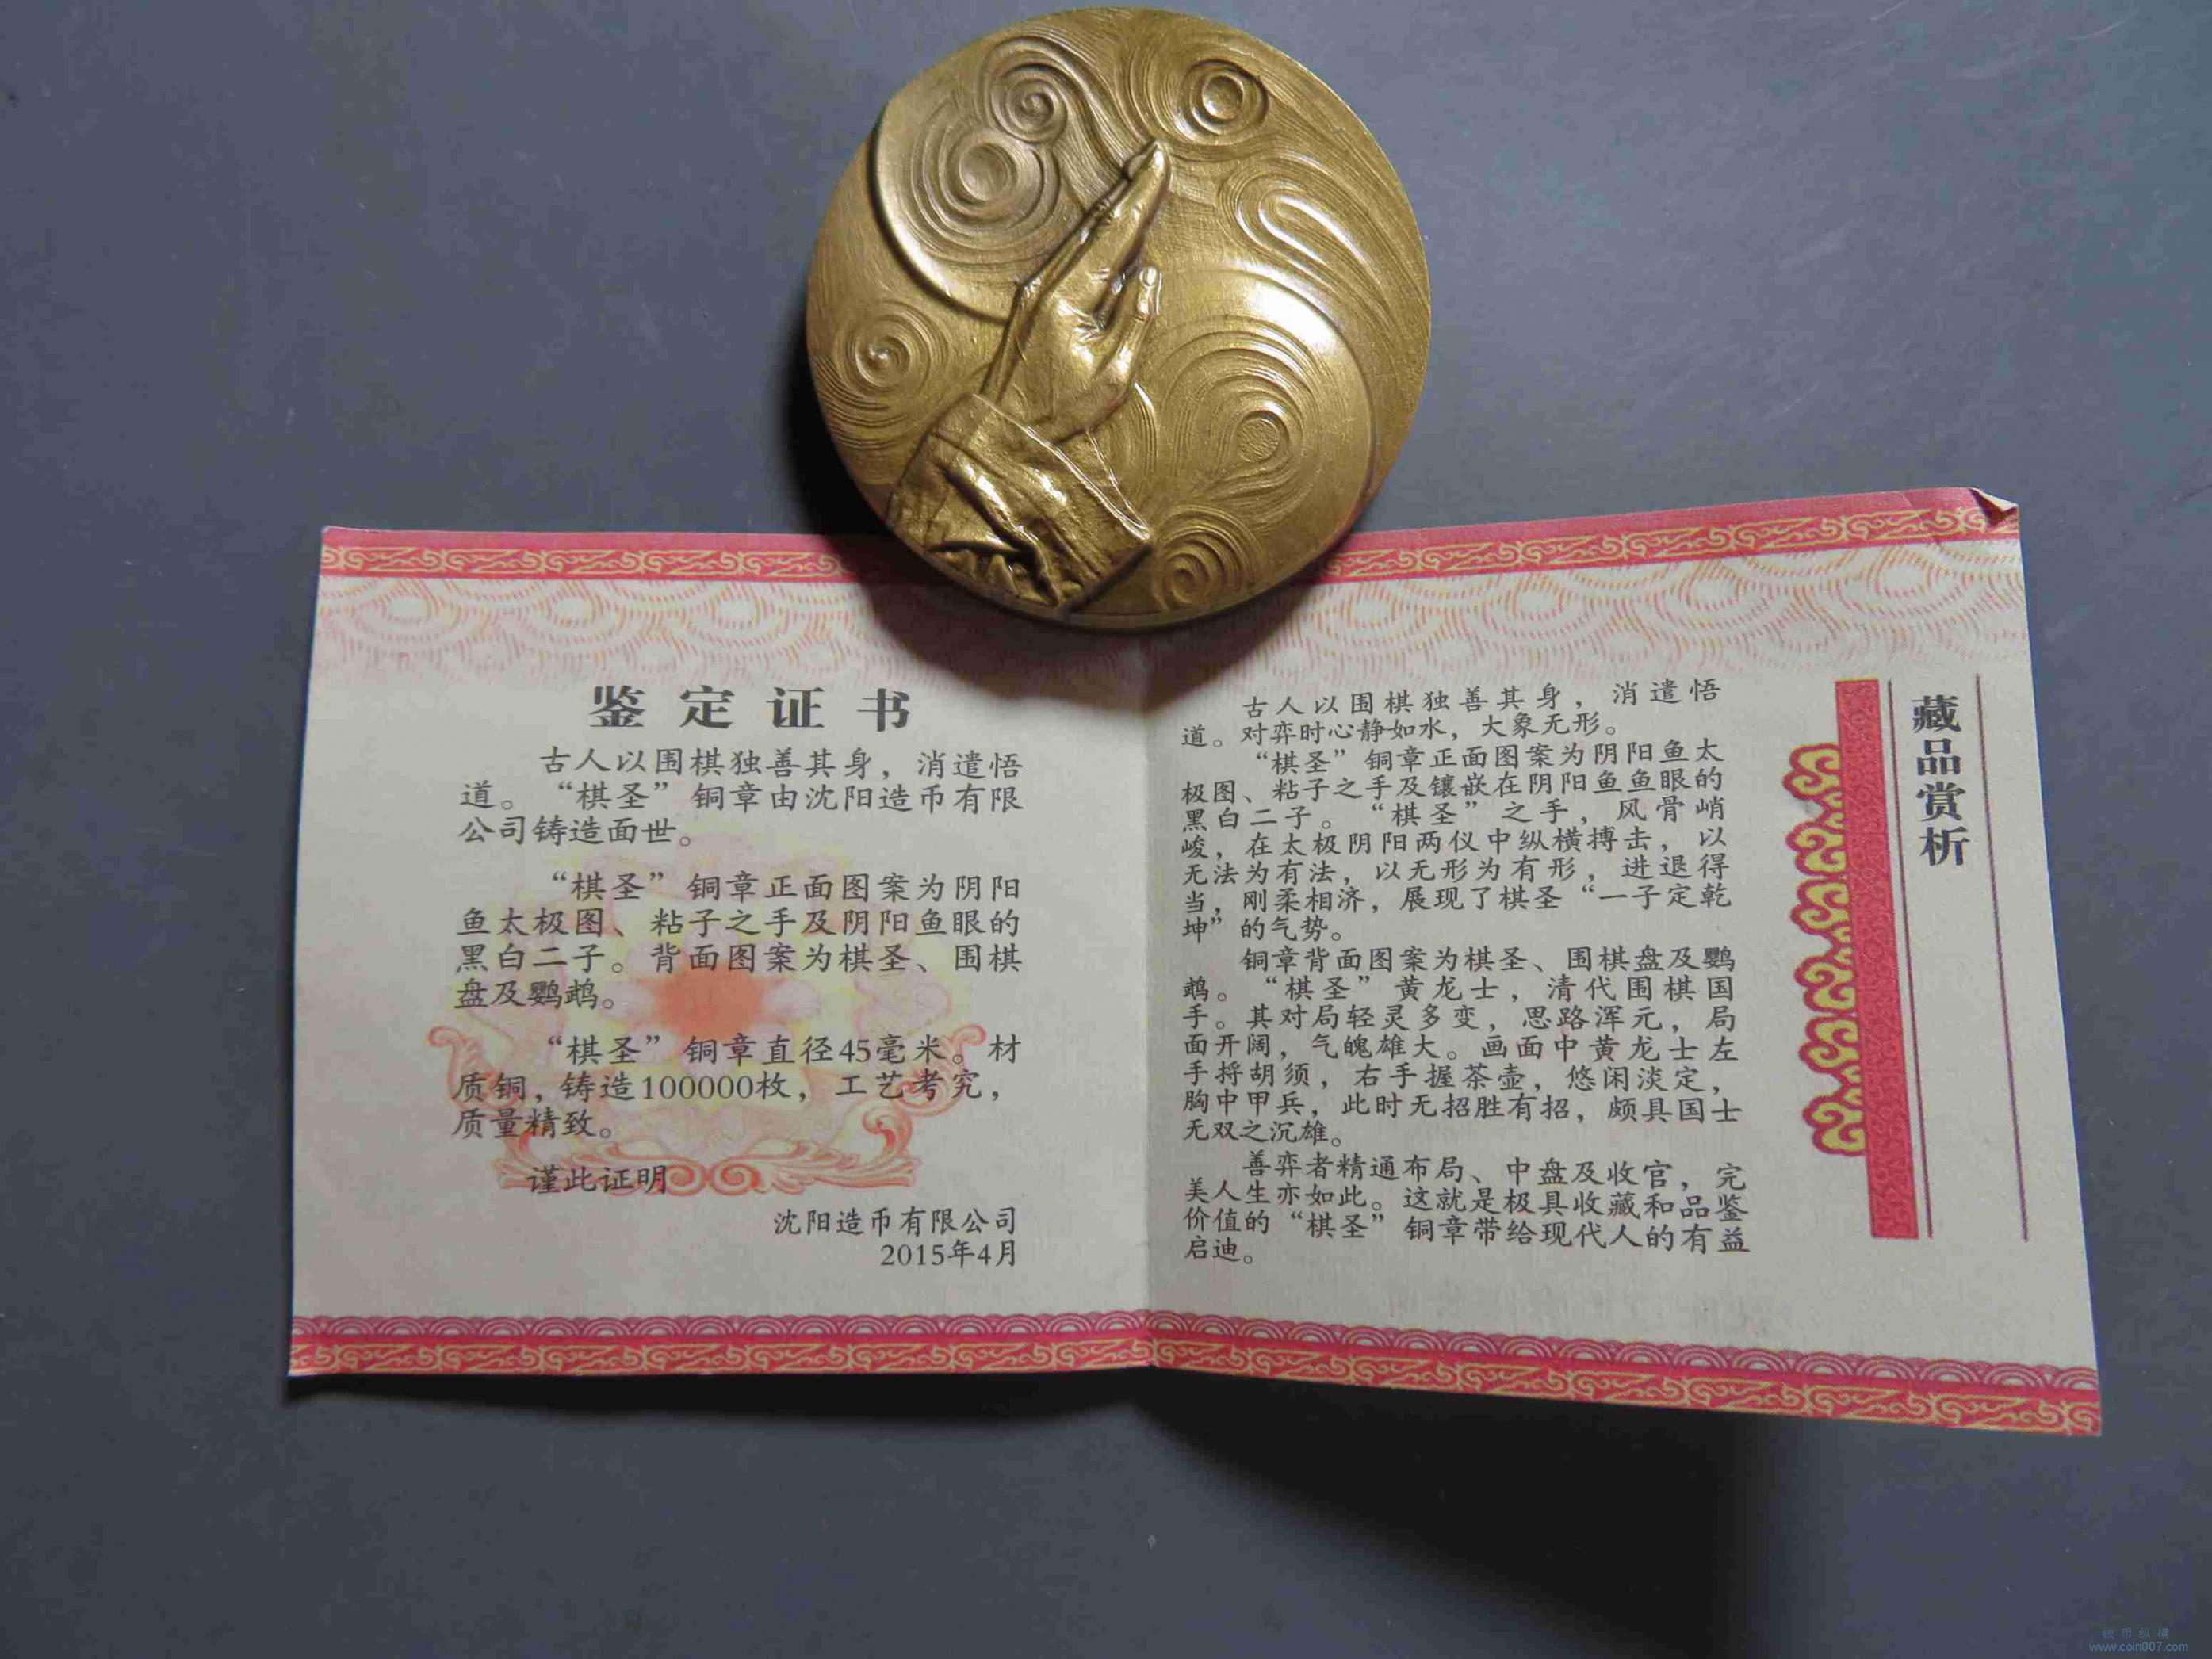 鉴定证书
古人以围棋独善其身，消遣悟
道。“棋圣”铜章由沈阳造币有限
公司铸造面世。
“棋圣”铜章正面图案为阴阳
鱼太极图、粘子之手及阴阳鱼眼的
黑白二子。背面图案为棋圣、围棋
盘及鹦鹉。
“棋圣”铜章直径45毫米。材
质铜，铸造100000枚，工艺考究，
质量精致。
谨此证明
沈阳造币有限公司
2015年4月
藏品赏析
古人以围棋独善其身，消遣悟
道。对弈时心静如水，大象无形。
“棋圣”铜章正面图案为阴阳鱼太
极图、粘子之手及镶嵌在阴阳鱼鱼眼的
黑白二子。“棋圣”之手，风骨峭
峻，在太极阴阳两仪中纵横搏击，以
无法为有法，以无形为有形，进退得
当，刚柔相济，展现了棋圣“一子定乾
坤”的气势。
铜章背面图案为棋圣、围棋盘及鹦
鹉。“棋圣”黄龙士，清代围棋国
手。其对局轻灵多变，思路浑元，局
面开阔，气魄雄大。画面中黄龙士左
手捋胡须，右手握茶壶，悠闲淡定，
胸中甲兵，此时无招胜有招，颇具国士
无双之沉雄。
善弈者精通布局、中盘及收官，完
美人生亦如此。这就是极具收藏和品鉴
价值的“棋圣”铜章带给现代人的有益
启迪。
钱币纵横
www.coin007.com